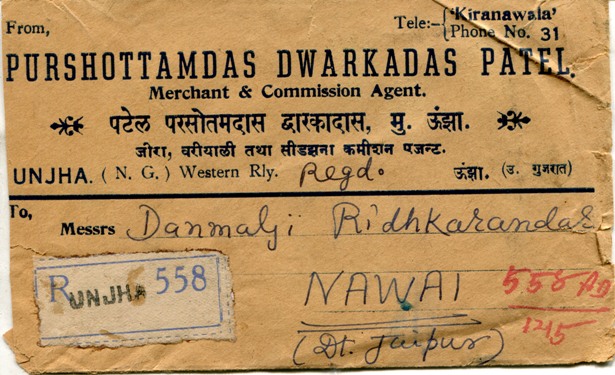 From,
Tele:- 'Kiranawala'
Phone No. 31
PURSHOTTAMDAS DWARKADAS PATEL.
Merchant & Commission Agent.
पटेल परसोतमदास द्वारकादास, मु. ऊंझा.
जीरा, वरीयाली तथा सीडझना कमीशन एजन्ट.
UNJHA. (N. G.) Western Rly. Regd. ऊंझा. (उ. गुजरात)
To,
Messrs Danmalji Ridhkarandas
R UNJHA 558
NAWAI
(Dt. Jaipur)
558 AD
1215